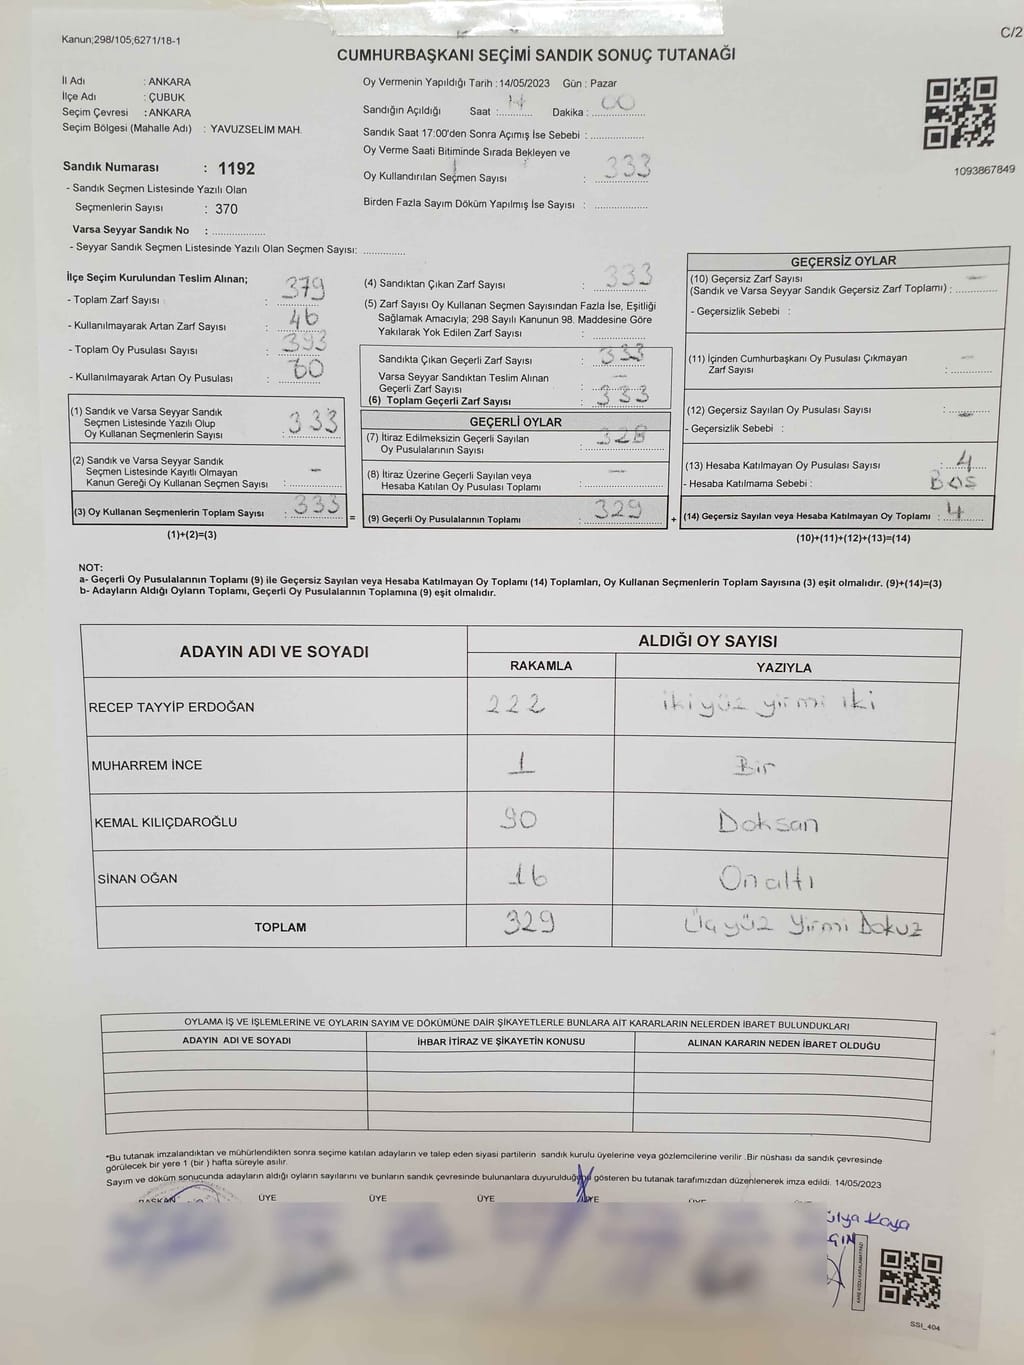 Kanun;298/105;6271/18-1
C/2
CUMHURBAŞKANI SEÇİMİ SANDIK SONUÇ TUTANAĞI
İl Adı : ANKARA
İlçe Adı : ÇUBUK
Seçim Çevresi : ANKARA
Seçim Bölgesi (Mahalle Adı) : YAVUZSELİM MAH.
Oy Vermenin Yapıldığı Tarih : 14/05/2023 Gün : Pazar
Sandığın Açıldığı Saat :......... Dakika : 00
Sandık Saat 17:00'den Sonra Açımış İse Sebebi :
Oy Verme Saati Bitiminde Sırada Bekleyen ve
Oy Kullandırılan Seçmen Sayısı : 333
Birden Fazla Sayım Döküm Yapılmış İse Sayısı :
1093867849
Sandık Numarası : 1192
- Sandık Seçmen Listesinde Yazılı Olan
Seçmenlerin Sayısı : 370
Varsa Seyyar Sandık No :
- Seyyar Sandık Seçmen Listesinde Yazılı Olan Seçmen Sayısı:
İlçe Seçim Kurulundan Teslim Alınan;
- Toplam Zarf Sayısı : 379
- Kullanılmayarak Artan Zarf Sayısı : 46
- Toplam Oy Pusulası Sayısı : 393
- Kullanılmayarak Artan Oy Pusulası : 60
(1) Sandık ve Varsa Seyyar Sandık
Seçmen Listesinde Yazılı Olup
Oy Kullanan Seçmenlerin Sayısı : 333
(2) Sandık ve Varsa Seyyar Sandık
Seçmen Listesinde Kayıtlı Olmayan
Kanun Gereği Oy Kullanan Seçmen Sayısı : –
(3) Oy Kullanan Seçmenlerin Toplam Sayısı : 333
(1)+(2)=(3)
(4) Sandıktan Çıkan Zarf Sayısı : 333
(5) Zarf Sayısı Oy Kullanan Seçmen Sayısından Fazla İse, Eşitliği
Sağlamak Amacıyla; 298 Sayılı Kanunun 98. Maddesine Göre
Yakılarak Yok Edilen Zarf Sayısı :
Sandıkta Çıkan Geçerli Zarf Sayısı : 333
Varsa Seyyar Sandıktan Teslim Alınan
Geçerli Zarf Sayısı : –
(6) Toplam Geçerli Zarf Sayısı : 333
GEÇERLİ OYLAR
(7) İtiraz Edilmeksizin Geçerli Sayılan
Oy Pusulalarının Sayısı :
(8) İtiraz Üzerine Geçerli Sayılan veya
Hesaba Katılan Oy Pusulası Toplamı : –
= (9) Geçerli Oy Pusulalarının Toplamı : 329
GEÇERSİZ OYLAR
(10) Geçersiz Zarf Sayısı –
(Sandık ve Varsa Seyyar Sandık Geçersiz Zarf Toplamı) :
- Geçersizlik Sebebi :
(11) İçinden Cumhurbaşkanı Oy Pusulası Çıkmayan
Zarf Sayısı : –
(12) Geçersiz Sayılan Oy Pusulası Sayısı : –
- Geçersizlik Sebebi :
(13) Hesaba Katılmayan Oy Pusulası Sayısı : 4
- Hesaba Katılmama Sebebi : BOŞ
+ (14) Geçersiz Sayılan veya Hesaba Katılmayan Oy Toplamı : 4
(10)+(11)+(12)+(13)=(14)
NOT:
a- Geçerli Oy Pusulalarının Toplamı (9) ile Geçersiz Sayılan veya Hesaba Katılmayan Oy Toplamı (14) Toplamları, Oy Kullanan Seçmenlerin Toplam Sayısına (3) eşit olmalıdır. (9)+(14)=(3)
b- Adayların Aldığı Oyların Toplamı, Geçerli Oy Pusulalarının Toplamına (9) eşit olmalıdır.
ADAYIN ADI VE SOYADI
ALDIĞI OY SAYISI
RAKAMLA YAZIYLA
RECEP TAYYİP ERDOĞAN 222 ikiyüz yirmi iki
MUHARREM İNCE 1 Bir
KEMAL KILIÇDAROĞLU 90 Doksan
SİNAN OĞAN 16 Onaltı
TOPLAM 329 Üçyüz Yirmi Dokuz
OYLAMA İŞ VE İŞLEMLERİNE VE OYLARIN SAYIM VE DÖKÜMÜNE DAİR ŞİKAYETLERLE BUNLARA AİT KARARLARIN NELERDEN İBARET BULUNDUKLARI
ADAYIN ADI VE SOYADI İHBAR İTİRAZ VE ŞİKAYETİN KONUSU ALINAN KARARIN NEDEN İBARET OLDUĞU
*Bu tutanak imzalandıktan ve mühürlendikten sonra seçime katılan adayların ve talep eden siyasi partilerin sandık kurulu üyelerine veya gözlemcilerine verilir .Bir nüshası da sandık çevresinde
görülecek bir yere 1 (bir ) hafta süreyle asılır.
Sayım ve döküm sonucunda adayların aldığı oyların sayılarını ve bunların sandık çevresinde bulunanlara duyurulduğunu gösteren bu tutanak tarafımızdan düzenlenerek imza edildi. 14/05/2023
BAŞKAN ÜYE ÜYE ÜYE ÜYE
Kaya
SSI_404